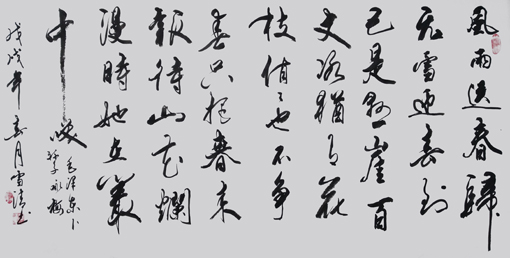 風雨送春歸
飛雪迎春到
已是懸崖百
丈冰猶有花
枝俏〻也不争
春只把春来
報待山花爛
漫時她在叢
中笑
毛泽东卜
算子咏梅
戊戌年春月雪书